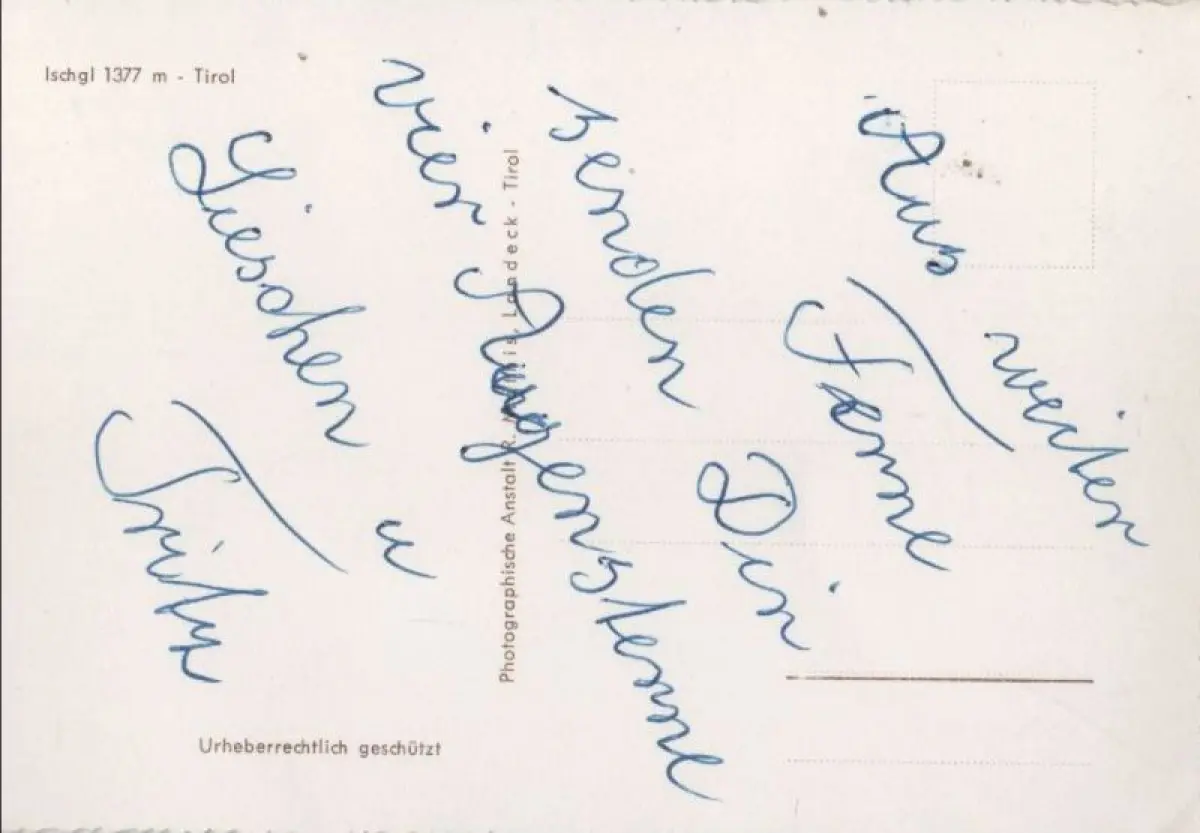 Ischgl 1377 m - Tirol
Aus weiter
Ferne
senden Dir
vier Augensterne
Lieschen u
Fritz
Photographische Anstalt R. Mathis, Landeck - Tirol
Urheberrechtlich geschützt